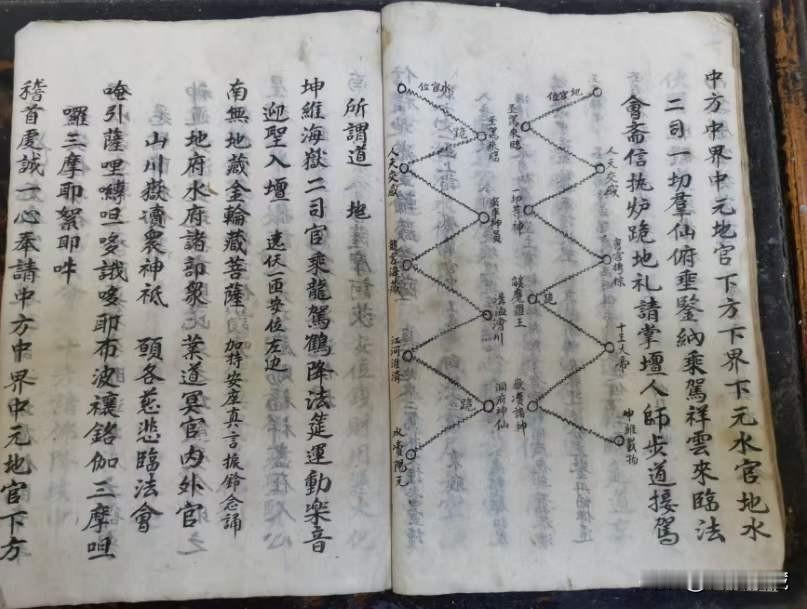 中方中界中元地官下方下界下元水官地水
二司一切羣仙俯垂鑒納乘駕祥雲來臨法
會斋信执炉跪地礼請掌壇人師步道接駕
地官位
人天交感
十王大帝
坤維載物
至駕來臨
一切尊神
跪
嶽瀆諸神
水官位
人天交感
龍宮海藏
江河淮濟
水賁陽元
跪
至駕來臨
洞府神仙
跪
所謂道 地
坤維海嶽二司官乘龍駕鶴降法筵運動樂音
迎聖入壇 遶伏一匝安位左边
南無地藏金輪藏菩薩 加持安座真言振鈴念誦
地府水府諸部衆 業道冥官内外官
山川嶽瀆衆神祇 願各慈悲臨法會
唵引薩哩嚩呾哆誐哆耶布波禳鉻伽三摩呾
囉三摩耶絮耶吽
稽首虔誠一心奉請中方中界中元地官下方